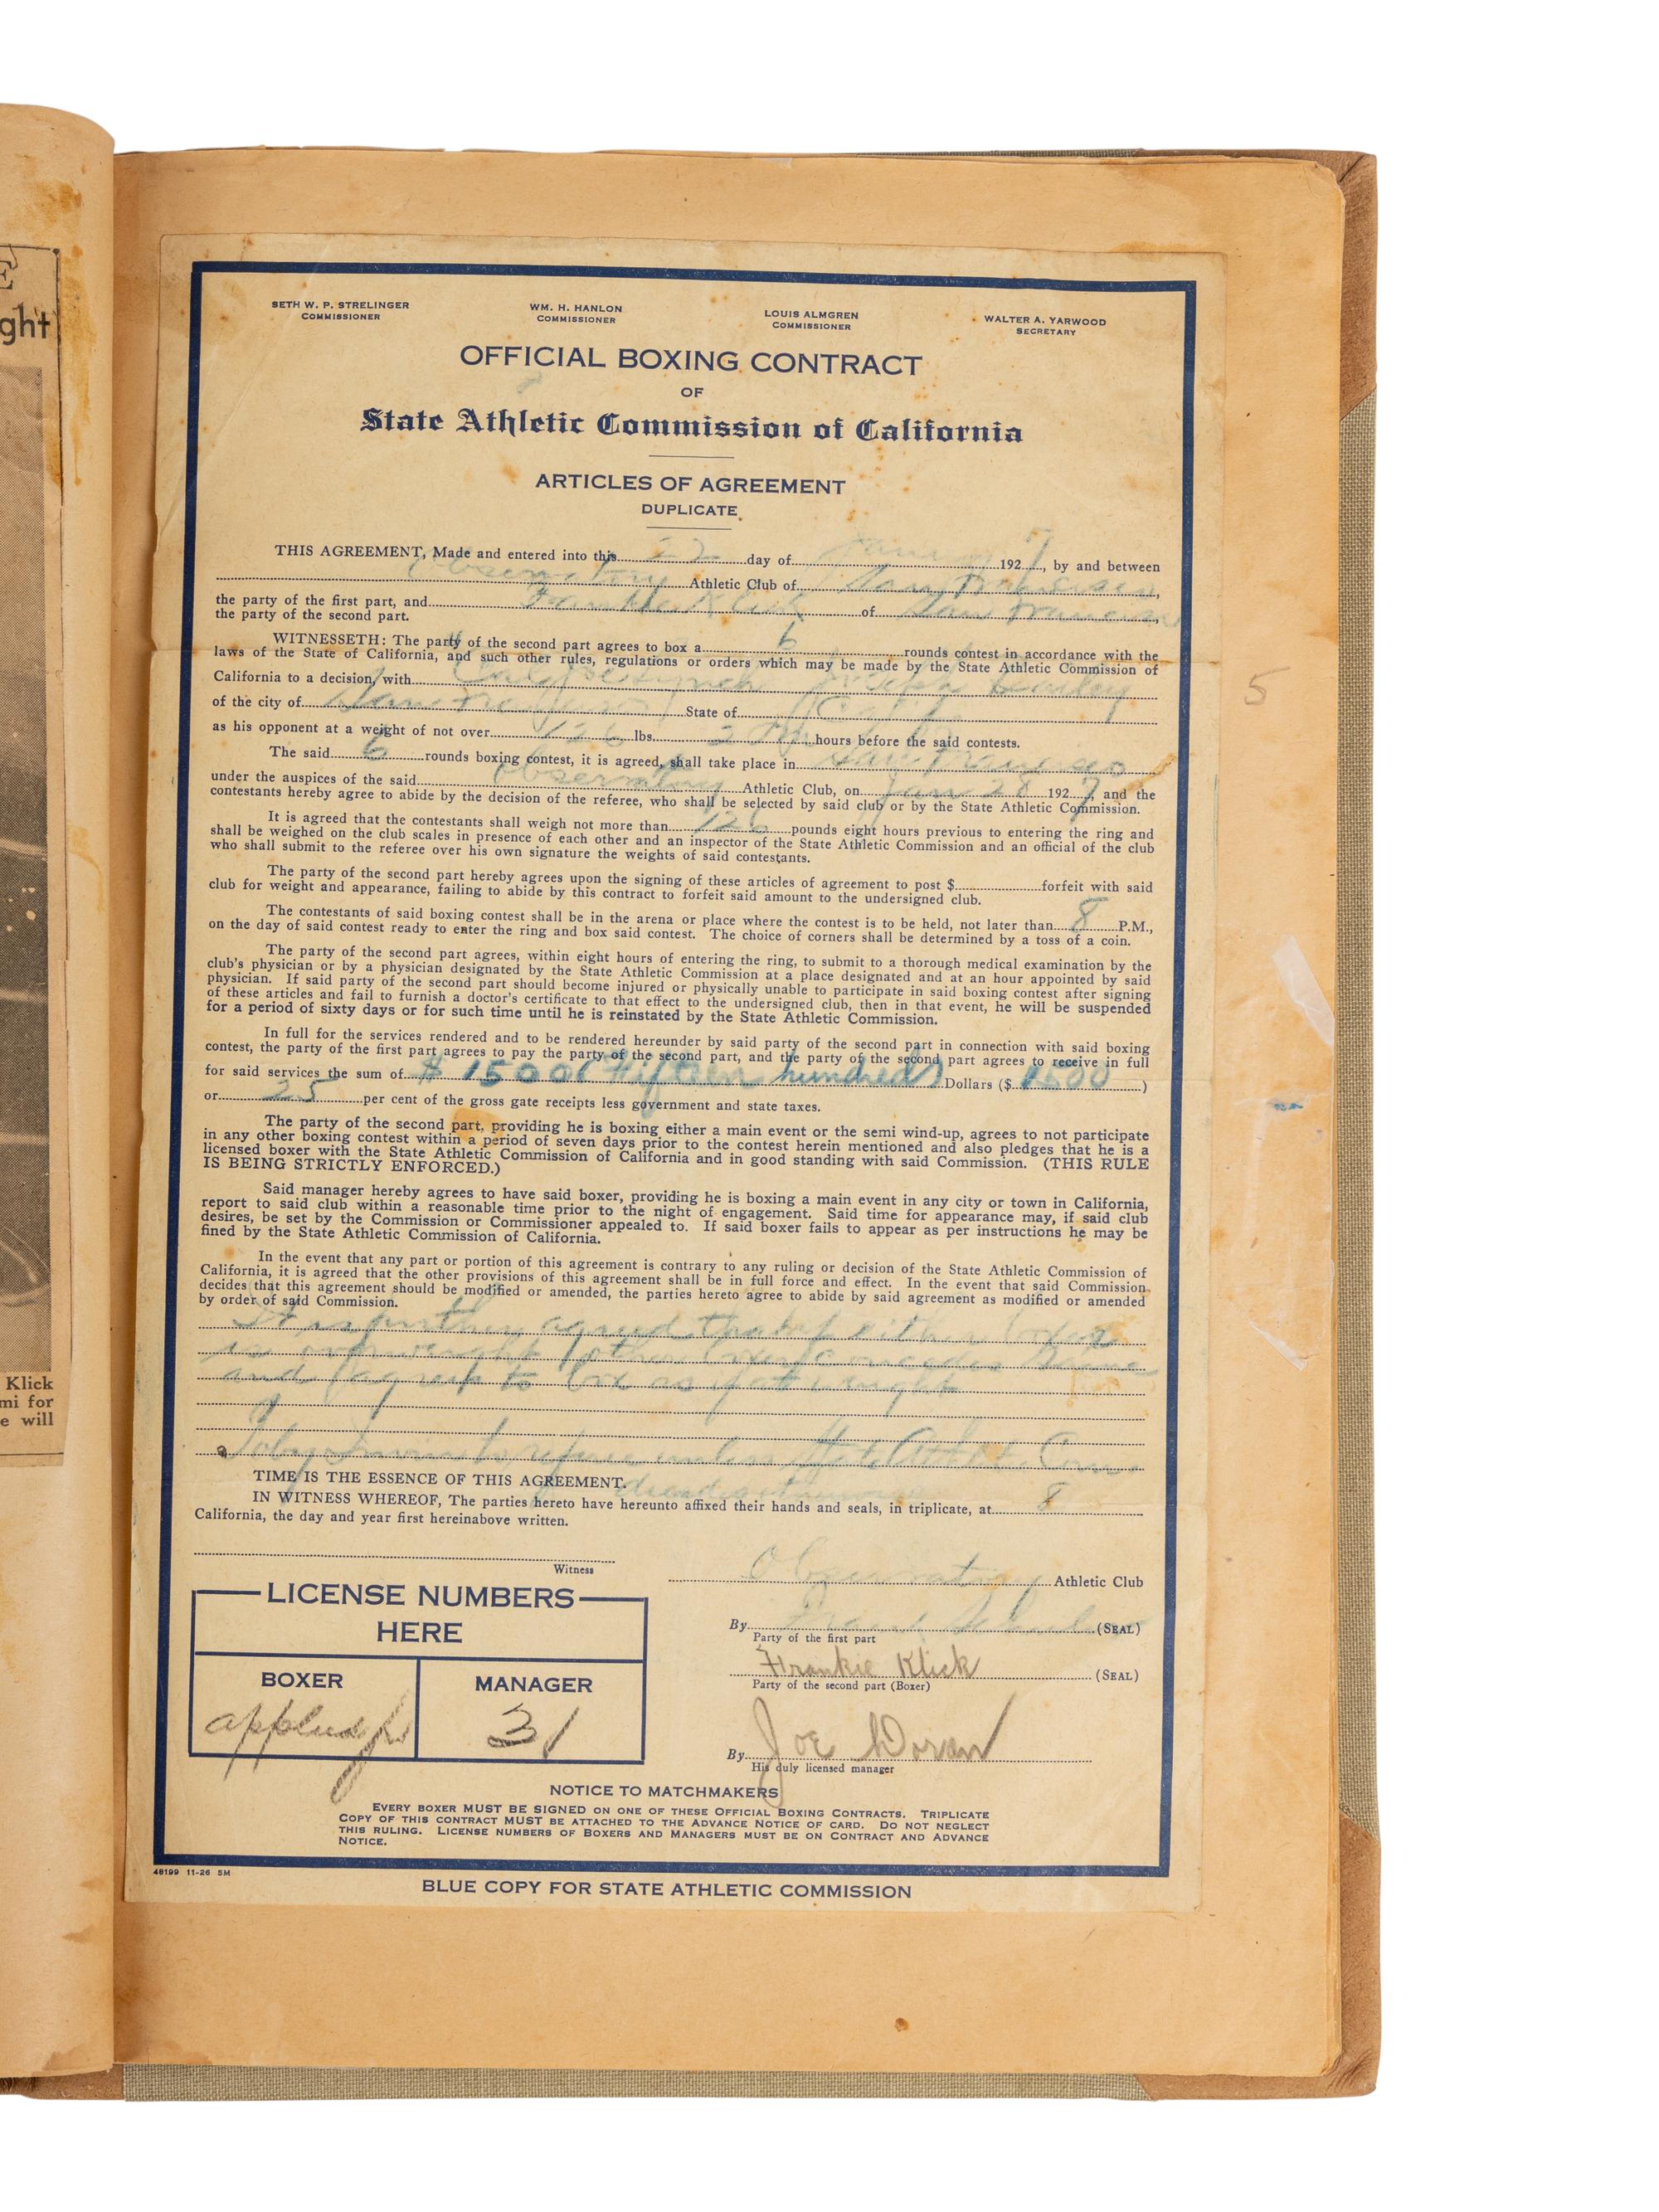 E
ght
Klick
mi for
e will
SETH W. P. STRELINGER
COMMISSIONER
WM. H. HANLON
COMMISSIONER
LOUIS ALMGREN
COMMISSIONER
WALTER A. YARWOOD
SECRETARY
OFFICIAL BOXING CONTRACT
OF
State Athletic Commission of California
ARTICLES OF AGREEMENT
DUPLICATE
THIS AGREEMENT, Made and entered into this 22 day of January 1927, by and between
Observatory Athletic Club of San Francisco,
the party of the first part, and Frankie Klick of San Francisco,
the party of the second part.
WITNESSETH: The party of the second part agrees to box a 6 rounds contest in accordance with the
laws of the State of California, and such other rules, regulations or orders which may be made by the State Athletic Commission of
California to a decision, with
of the city of San Francisco State of Calif
as his opponent at a weight of not over 126 lbs. 2 PM hours before the said contests.
The said 6 rounds boxing contest, it is agreed, shall take place in San Francisco
under the auspices of the said Observatory Athletic Club, on Jan 28 1927, and the
contestants hereby agree to abide by the decision of the referee, who shall be selected by said club or by the State Athletic Commission.
It is agreed that the contestants shall weigh not more than 126 pounds eight hours previous to entering the ring and
shall be weighed on the club scales in presence of each other and an inspector of the State Athletic Commission and an official of the club
who shall submit to the referee over his own signature the weights of said contestants.
The party of the second part hereby agrees upon the signing of these articles of agreement to post $ forfeit with said
club for weight and appearance, failing to abide by this contract to forfeit said amount to the undersigned club.
The contestants of said boxing contest shall be in the arena or place where the contest is to be held, not later than 8 P.M.,
on the day of said contest ready to enter the ring and box said contest. The choice of corners shall be determined by a toss of a coin.
The party of the second part agrees, within eight hours of entering the ring, to submit to a thorough medical examination by the
club's physician or by a physician designated by the State Athletic Commission at a place designated and at an hour appointed by said
physician. If said party of the second part should become injured or physically unable to participate in said boxing contest after signing
of these articles and fail to furnish a doctor's certificate to that effect to the undersigned club, then in that event, he will be suspended
for a period of sixty days or for such time until he is reinstated by the State Athletic Commission.
In full for the services rendered and to be rendered hereunder by said party of the second part in connection with said boxing
contest, the party of the first part agrees to pay the party of the second part, and the party of the second part agrees to receive in full
for said services the sum of $ 1500 (Fifteen hundred) Dollars ($ 1500 )
or 25 per cent of the gross gate receipts less government and state taxes.
The party of the second part, providing he is boxing either a main event or the semi wind-up, agrees to not participate
in any other boxing contest within a period of seven days prior to the contest herein mentioned and also pledges that he is a
licensed boxer with the State Athletic Commission of California and in good standing with said Commission. (THIS RULE
IS BEING STRICTLY ENFORCED.)
Said manager hereby agrees to have said boxer, providing he is boxing a main event in any city or town in California,
report to said club within a reasonable time prior to the night of engagement. Said time for appearance may, if said club
desires, be set by the Commission or Commissioner appealed to. If said boxer fails to appear as per instructions he may be
fined by the State Athletic Commission of California.
In the event that any part or portion of this agreement is contrary to any ruling or decision of the State Athletic Commission of
California, it is agreed that the other provisions of this agreement shall be in full force and effect. In the event that said Commission
decides that this agreement should be modified or amended, the parties hereto agree to abide by said agreement as modified or amended
by order of said Commission.
It is further agreed that if either boxer
is overweight other boxer concedes
and agrees to box as if at weight
referee unless State Athletic Com.
TIME IS THE ESSENCE OF THIS AGREEMENT.
IN WITNESS WHEREOF, The parties hereto have hereunto affixed their hands and seals, in triplicate, at 8
California, the day and year first hereinabove written.
Witness
Observatory Athletic Club
By (SEAL)
Party of the first part
Frankie Klick (SEAL)
Party of the second part (Boxer)
By Joe Doran
His duly licensed manager
LICENSE NUMBERS
HERE
BOXER
MANAGER
31
NOTICE TO MATCHMAKERS
EVERY BOXER MUST BE SIGNED ON ONE OF THESE OFFICIAL BOXING CONTRACTS. TRIPLICATE
COPY OF THIS CONTRACT MUST BE ATTACHED TO THE ADVANCE NOTICE OF CARD. DO NOT NEGLECT
THIS RULING. LICENSE NUMBERS OF BOXERS AND MANAGERS MUST BE ON CONTRACT AND ADVANCE
NOTICE.
46199 11-26 5M
BLUE COPY FOR STATE ATHLETIC COMMISSION
5